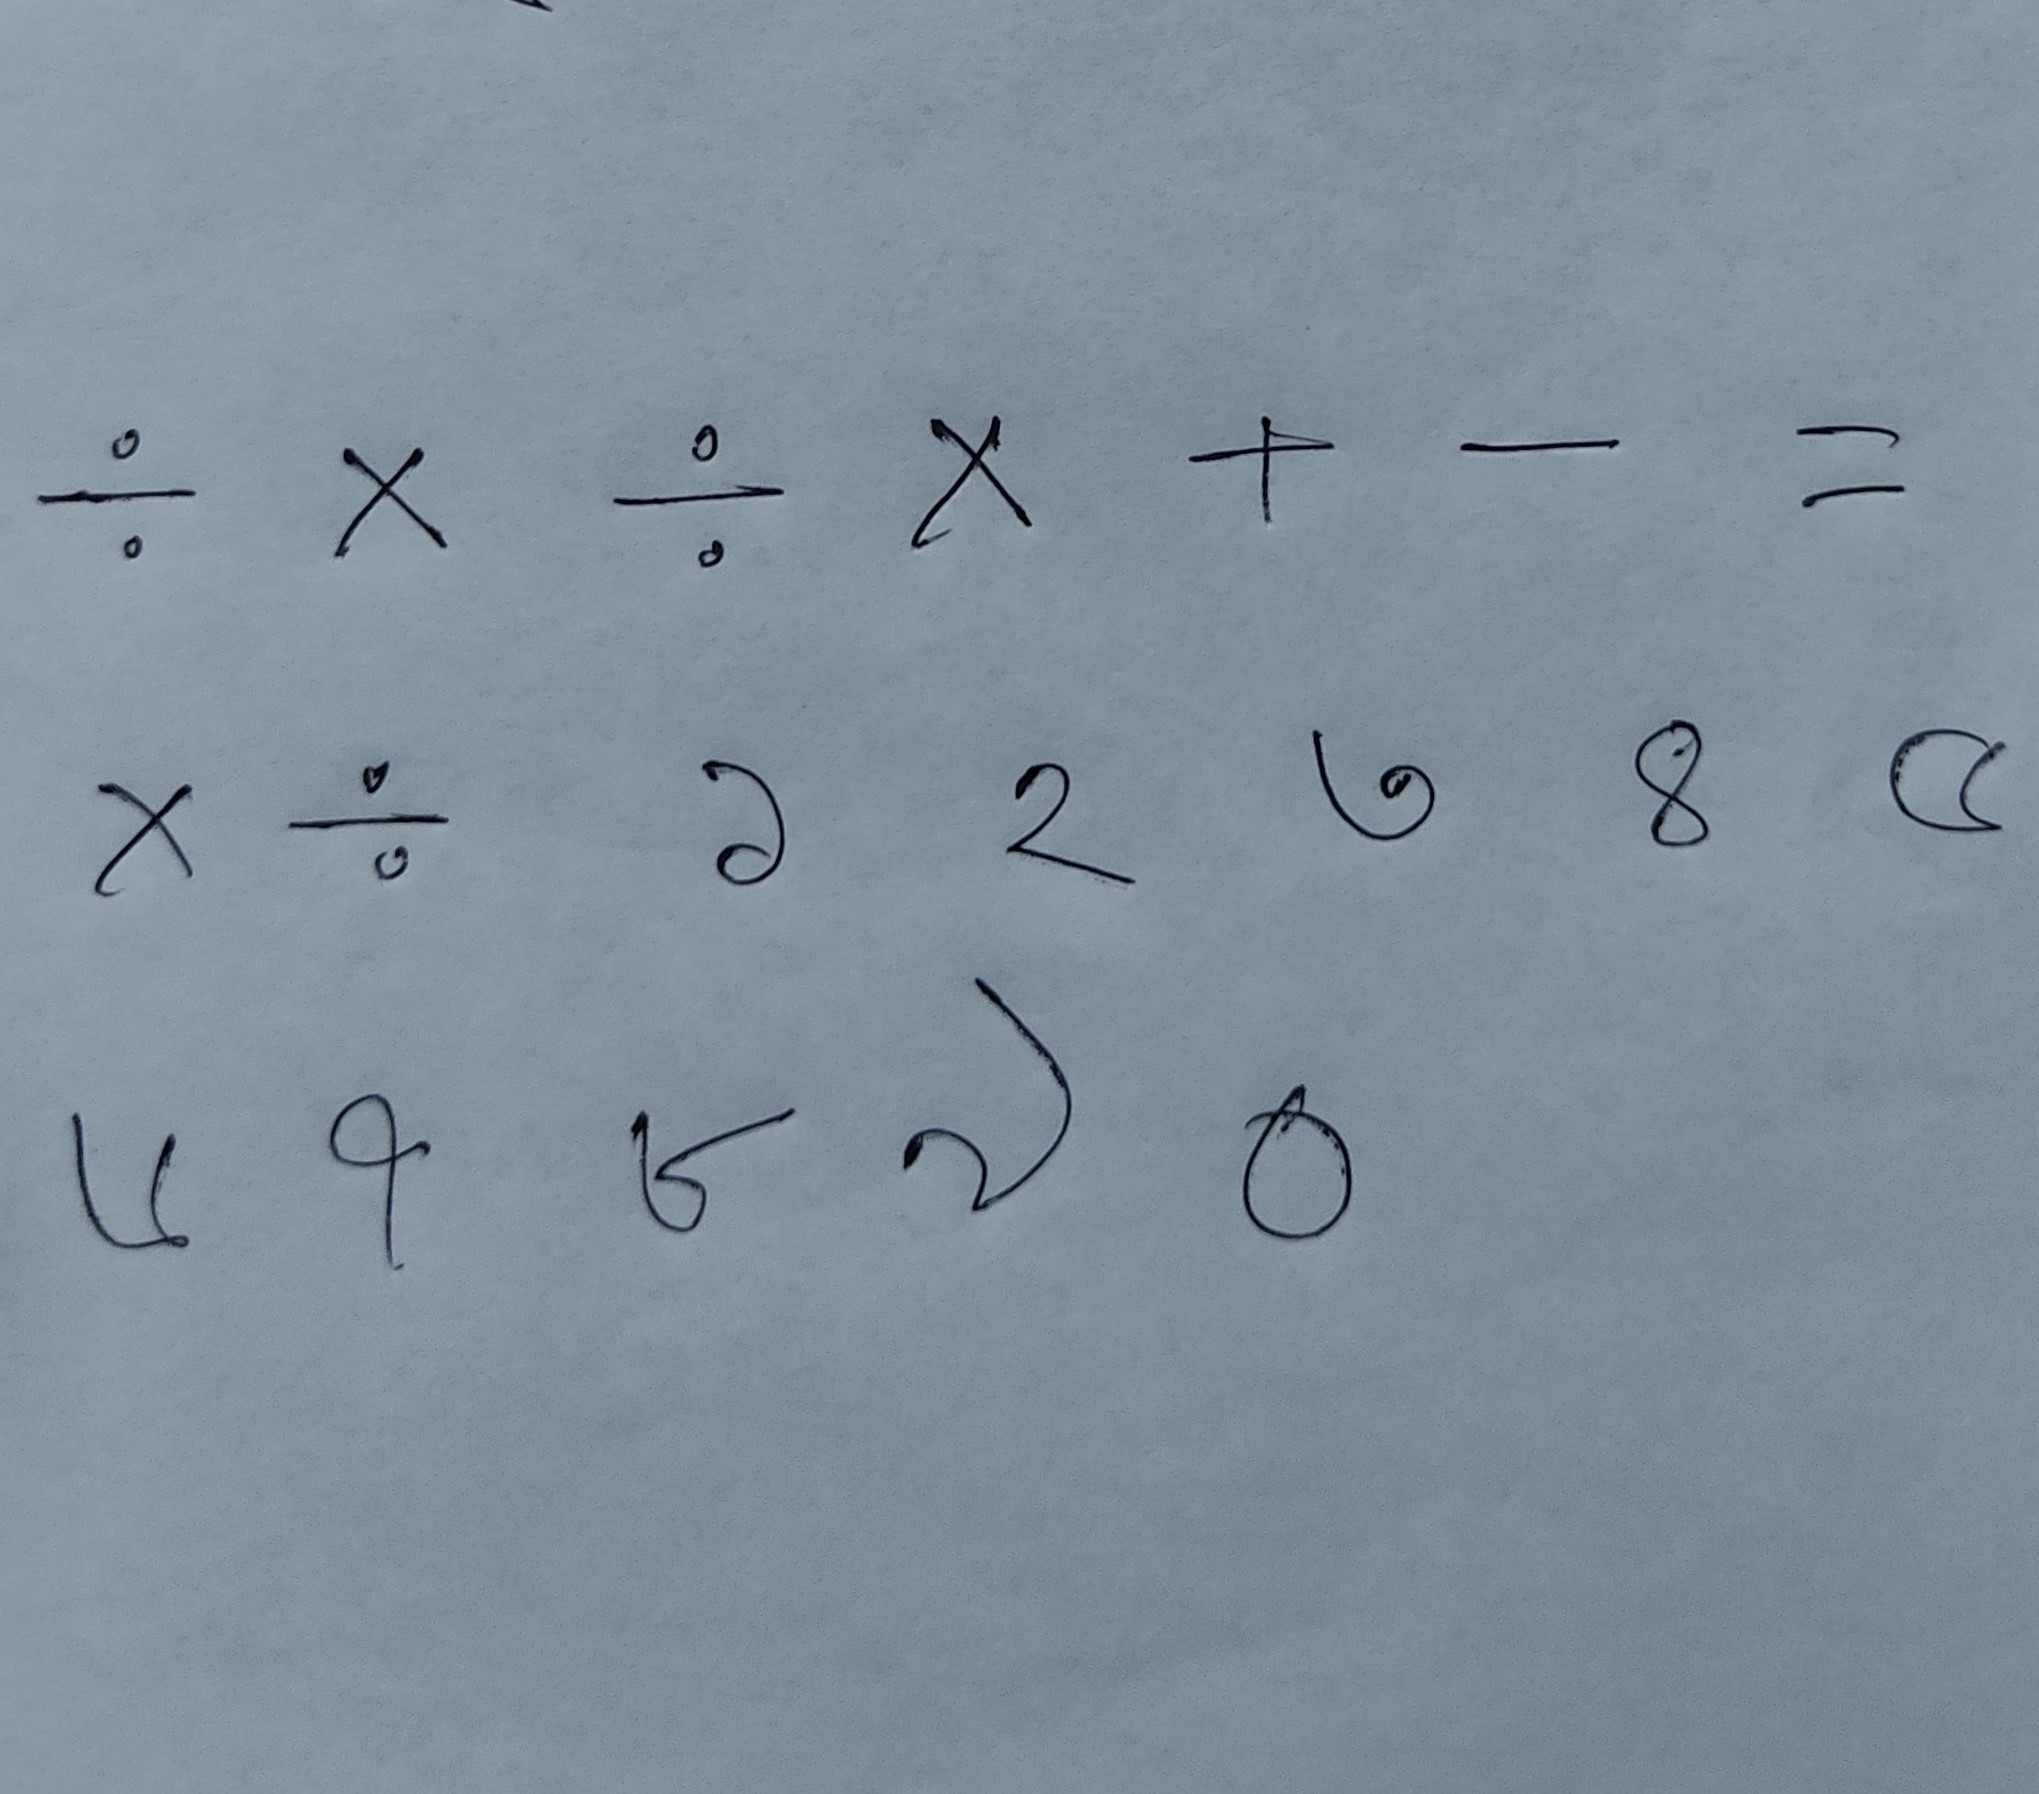 ÷ × ÷ × + − =
× ÷ ১ ২ ৩ ৪ ৫
৬ ৭ ৮ ৯ ০